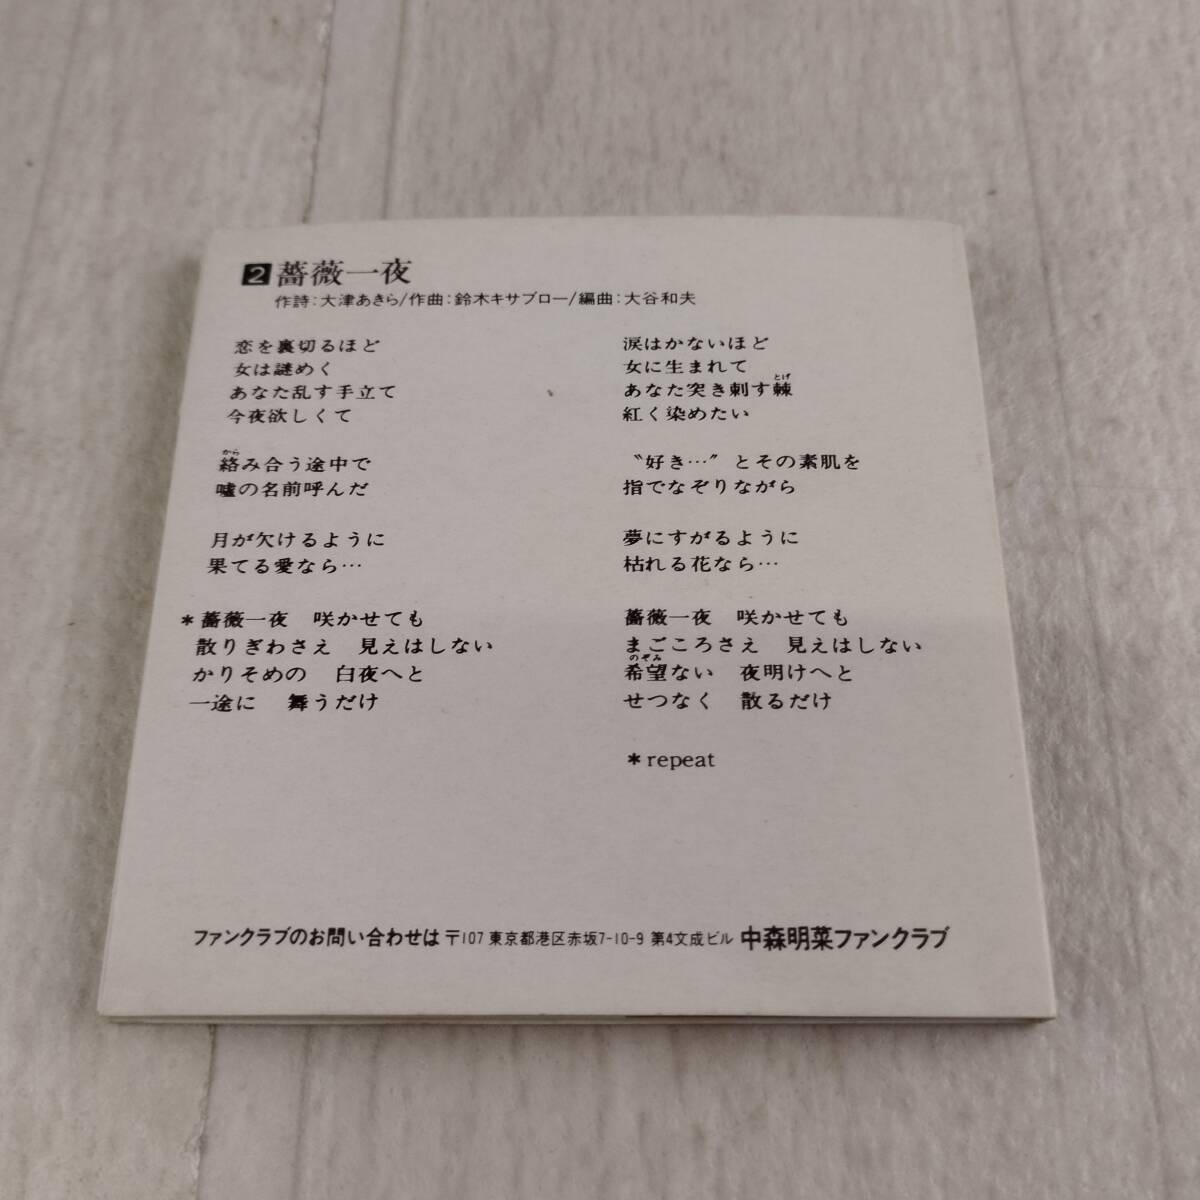 2 薔薇一夜
作詩:大津あきら/作曲:鈴木キサブロー/編曲:大谷和夫
恋を裏切るほど
女は謎めく
あなた乱す手立て
今夜欲しくて
から
絡み合う途中で
嘘の名前呼んだ
月が欠けるように
果てる愛なら…
*薔薇一夜 咲かせても
散りぎわさえ 見えはしない
かりそめの 白夜へと
一途に 舞うだけ
涙はかないほど
女に生まれて
とげ
あなた突き刺す棘
紅く染めたい
〝好き…〟とその素肌を
指でなぞりながら
夢にすがるように
枯れる花なら…
薔薇一夜 咲かせても
まごころさえ 見えはしない
のぞみ
希望ない 夜明けへと
せつなく 散るだけ
*repeat
ファンクラブのお問い合わせは 〒107 東京都港区赤坂7-10-9 第4文成ビル 中森明菜ファンクラブ